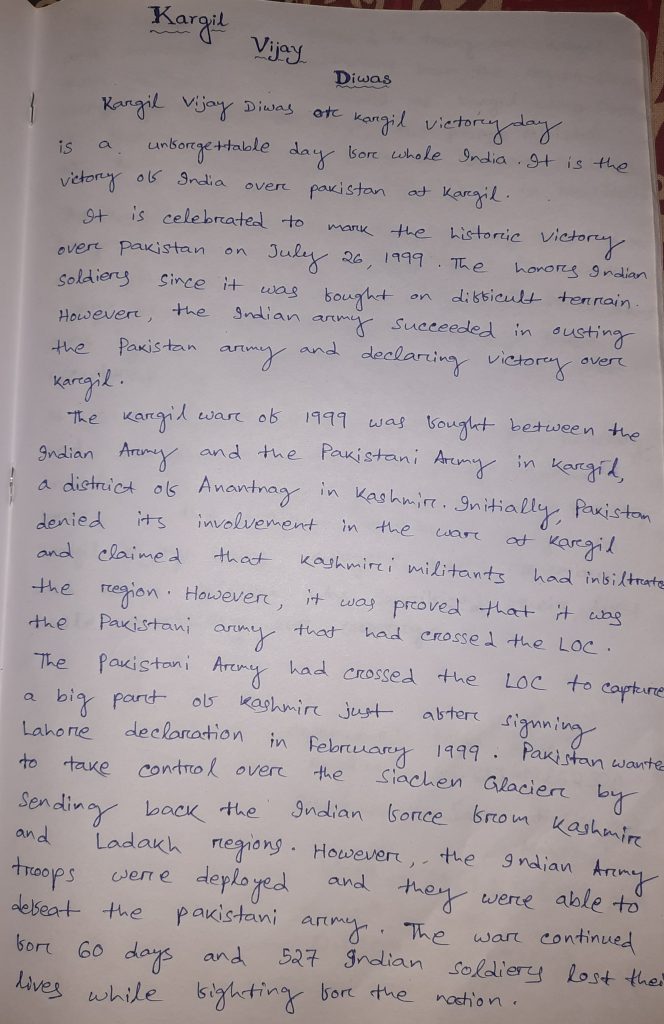 Kargil
Vijay
Diwas
Kargil Vijay Diwas or Kargil victory day
is a unforgettable day for whole India. It is the
victory of India over pakistan at Kargil.
It is celebrated to mark the historic victory
over Pakistan on July 26, 1999. The honors Indian
soldiers since it was fought on difficult terrain.
However, the Indian army succeeded in ousting
the Pakistan army and declaring victory over
Kargil.
The Kargil war of 1999 was fought between the
Indian Army and the Pakistani Army in Kargil,
a district of Anantnag in Kashmir. Initially, Pakistan
denied its involvement in the war at Kargil
and claimed that Kashmiri militants had infiltrate
the region. However, it was proved that it was
the Pakistani army that had crossed the LOC.
The Pakistani Army had crossed the LOC to capture
a big part of Kashmir just after signning
Lahore declaration in February 1999. Pakistan wante
to take control over the Siachen Glacier by
Sending back the Indian force from Kashmir
and Ladakh regions. However, the Indian Army
troops were deployed and they were able to
defeat the pakistani army. The war continued
for 60 days and 527 Indian soldiers lost thei
lives while fighting for the nation.